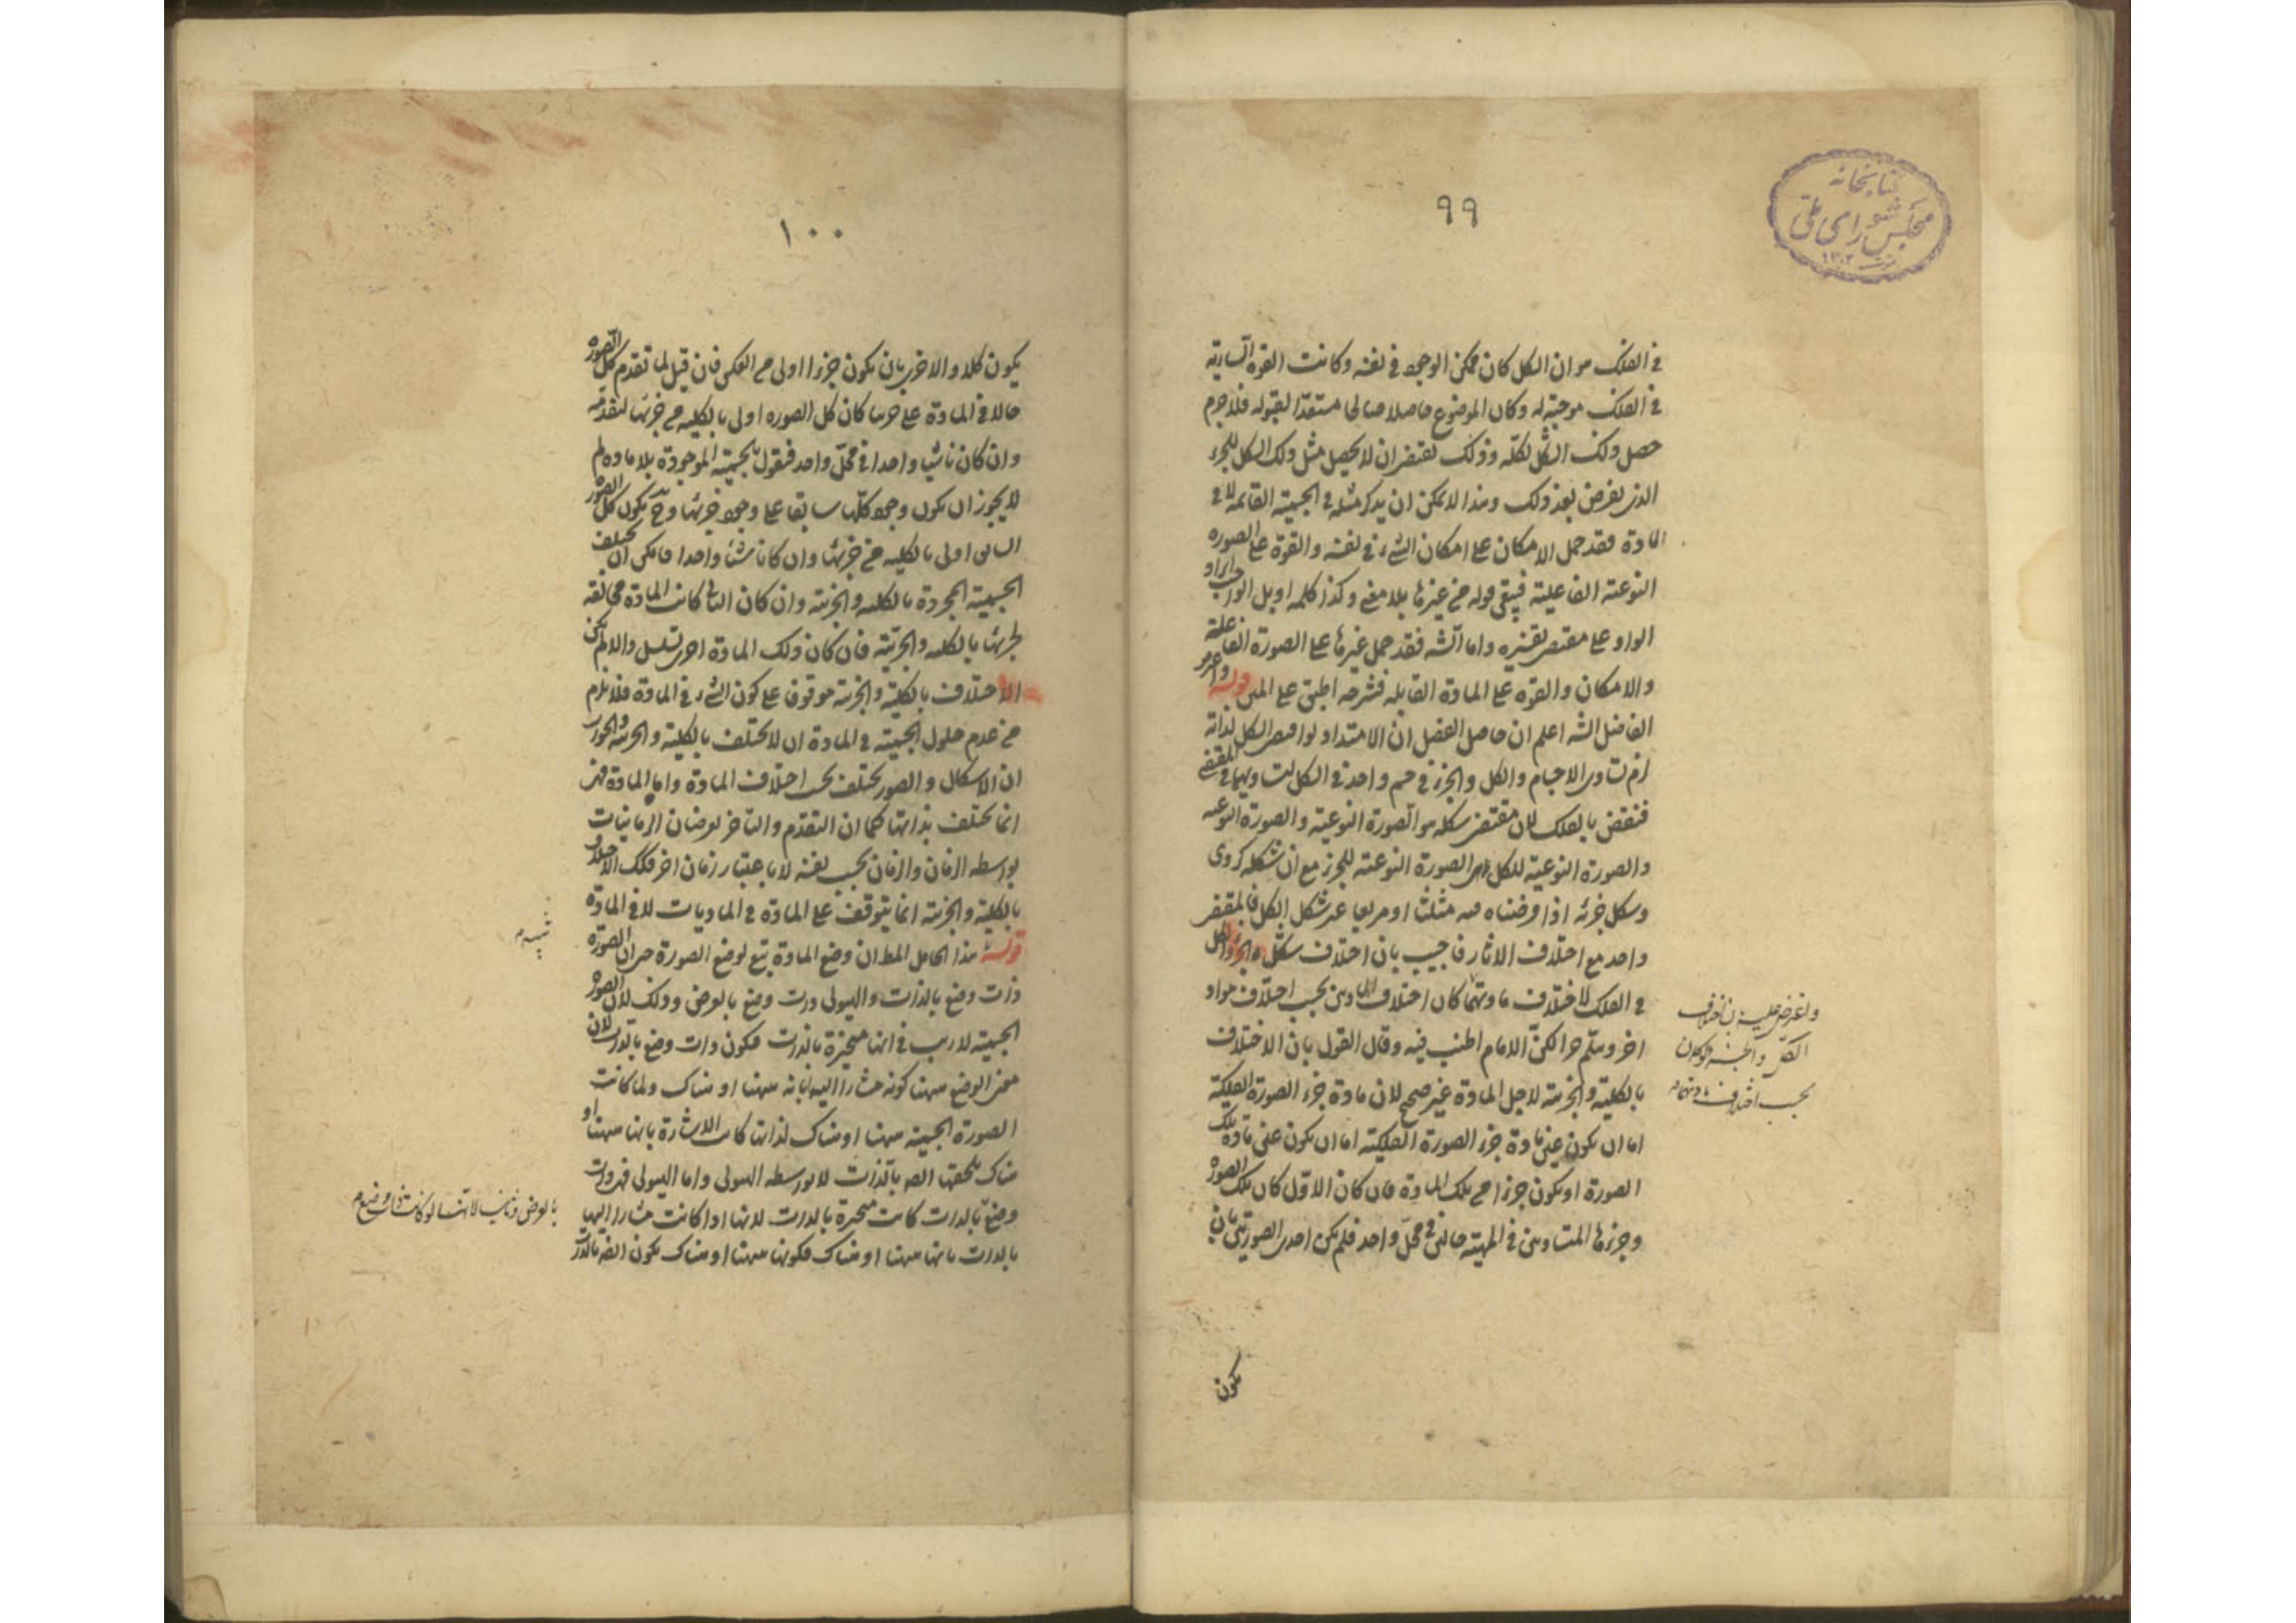 ٩٩
كتابخانه
مجلس شورای ملی
١٣٠٢
في الفلك هو ان الكل كان ممكن الوجود في نفسه وكانت القوة السارية
في الفلك موجبة له وكان الموضوع حاصلا صالحا مستعدا لقبوله فلا جرم
حصل ذلك الشكل لكله وذلك يقتضي ان لا يحصل مثل ذلك الشكل للجزء
الذي يفرض بعد ذلك وهذا لا يمكن ان يذكر مثله في الجسمية القائمة لا في
المادة فقد حمل الامكان على امكان الشيء في نفسه والقوة على الصورة
النوعية الفاعلية فيبقى قوله من غيرها بلا معنى وكذا كلمة او بل الواجب ايراد
الواو على مقتضى تفسيره واما الشه فقد حمل غيرها على الصورة الفاعلة
والامكان والقوة على المادة القابلة فشرحه اطبق على المتن قوله
الفاضل الشه اعلم ان حاصل الفصل ان الامتداد لو اقتضى الشكل لذاته
لزم تساوي الاجسام والكل والجزء في جسم واحد في الشكل لتساويهما في المقتضي
فنقض بالفلك لان مقتضى شكله هو الصورة النوعية والصورة النوعية
والصورة النوعية للكل الصورة النوعية للجزء مع ان شكله كروي
وشكل جزئه اذا فرضناه مثلثا او مربعا غير شكل الكل فالمقتضي
واحد مع اختلاف الاثار فاجيب بان اختلاف شكل الجزء والكل
في الفلك لاختلاف مادتهما كان اختلاف المادتين بحسب اختلاف مواد
اخر وهلم جرا لكن الامام اطنب فيه وقال القول بان الاختلاف
بالكلية والجزئية لاجل المادة غير صحيح لان مادة جزء الصورة الفلكية
اما ان يكون عين مادة جزء الصورة الفلكية اما ان يكون عين مادة تلك
الصورة او يكون جزءا من تلك المادة فان كان الاول كان تلك الصورة
وجزءها المتساويين في المهية حالين في محل واحد فلم يكن احدى الصورتين بان
واعترض عليه بان اختلاف
الكل والجزء لو كان
بحسب اختلاف مادتهما
يكون
١٠٠
يكون كلا والاخرى بان يكون جزءا اولى من العكس فان قيل لما تقدم كل الصورة
حالا في المادة على كان كل الصورة اولى بالكلية من جزئها لتقدمه
وان كان واحدا في محل واحد فنقول الجسمية الموجودة بلا مادة لم
لا يجوز ان يكون وجود كلها سابقا على وجود جزئها وح يكون كل الصورة
اولى بالكلية من جزئها وان كانا شيئا واحدا فامكن ان يختلف
الجسمية المجردة بالكلية والجزئية وان كان الثاني كانت المادة مخالفة
لجزئها بالكلية والجزئية فان كان ذلك المادة اخرى تسلسل والا لم يكن
الاختلاف بالكلية والجزئية موقوفا على كون الشيء في المادة فلا يلزم
من عدم حلول الجسمية في المادة ان لا يختلف بالكلية والجزئية والجواب
ان الاشكال والصور يختلف بحسب اختلاف المادة واما المادة فهي
انما تختلف بذاتها كما ان التقدم والتاخر يعرضان الزمانيات
بواسطة الزمان والزمان بحسب نفسه لا باعتبار زمان اخر فكذلك الاختلاف
بالكلية والجزئية انما يتوقف على المادة في الماديات لا في المادة
قوله هذا الحامل المط ان وضع المادة تبع لوضع الصورة الصورة
ذات وضع بالذات والهيولى ذات وضع بالعرض وذلك لان الصورة
الجسمية لا ريب في انها متحيزة بالذات فيكون ذات وضع بالذات لان
معنى الوضع ههنا كونه مشارا اليه بانه ههنا او هناك ولما كانت
الصورة الجسمية ههنا او هناك لذاتها كانت الاشارة بانها ههنا او
هناك تلحقها ايضا بالذات لا بواسطة الهيولى واما الهيولى فهي ذات
وضع بالذات كانت متحيزة بالذات لانها اذا كانت مشارا اليها
بالذات بانها ههنا او هناك فكونها ههنا او هناك يكون ايضا بالذات
بالعرض لانها لو كانت ذات وضع م